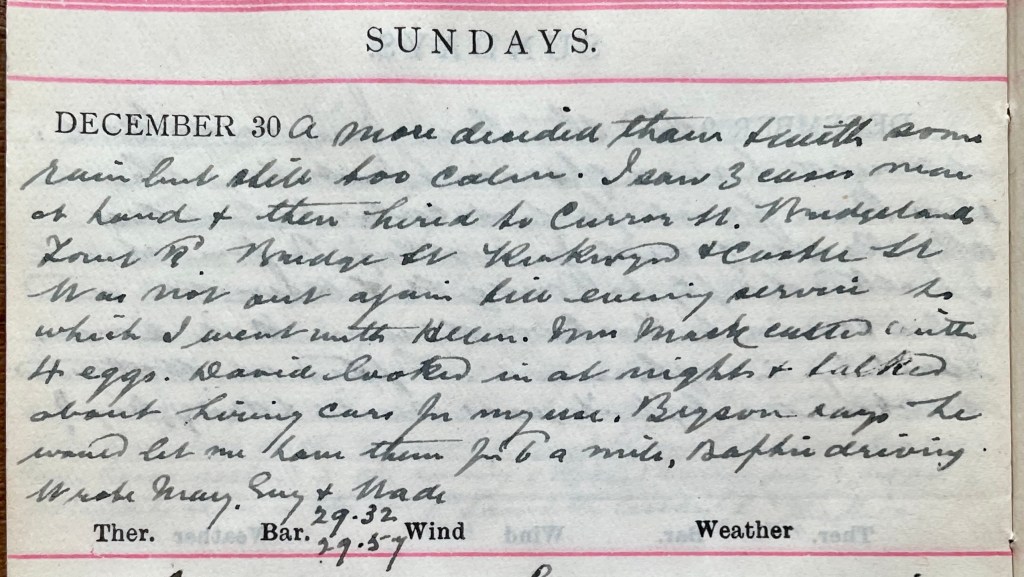 SUNDAYS.
DECEMBER 30 A more decided thaw & with some
rain but still too calm. I saw 3 cases near
at hand & then hired to Curror St. Bridgelands
Tower Rd Bridge St & Castle St
Was not out again till evening service to
which I went with Helen. Mrs Mack called with
4 eggs. David looked in at night & talked
about hiring cars for my use. Bryson says he
would let me have them for 6 a mile, driving.
Wrote May, Guy & Wade
29.32
Ther. Bar. Wind Weather
29.57